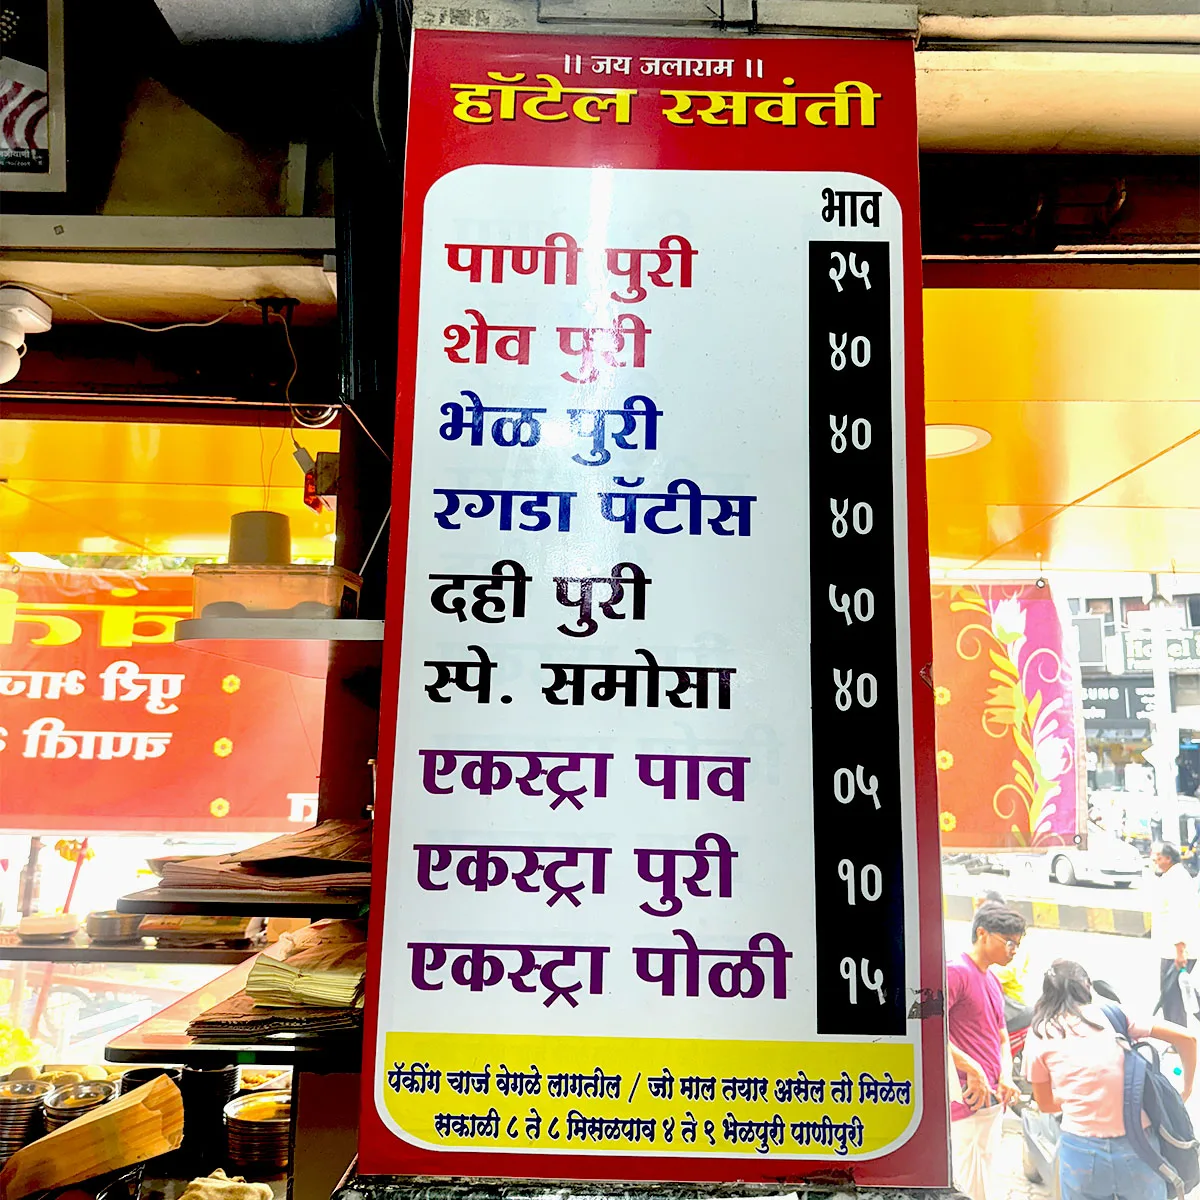 ॥ जय जलाराम ॥
हॉटेल रसवंती
भाव
पाणी पुरी २५
शेव पुरी ४०
भेळ पुरी ४०
रगडा पॅटीस ४०
दही पुरी ५०
स्पे. समोसा ४०
एकस्ट्रा पाव ०५
एकस्ट्रा पुरी १०
एकस्ट्रा पोळी १५
पॅकींग चार्ज वेगळे लागतील / जो माल तयार असेल तो मिळेल
सकाळी ८ ते ८ मिसळपाव ४ ते ९ भेळपुरी पाणीपुरी